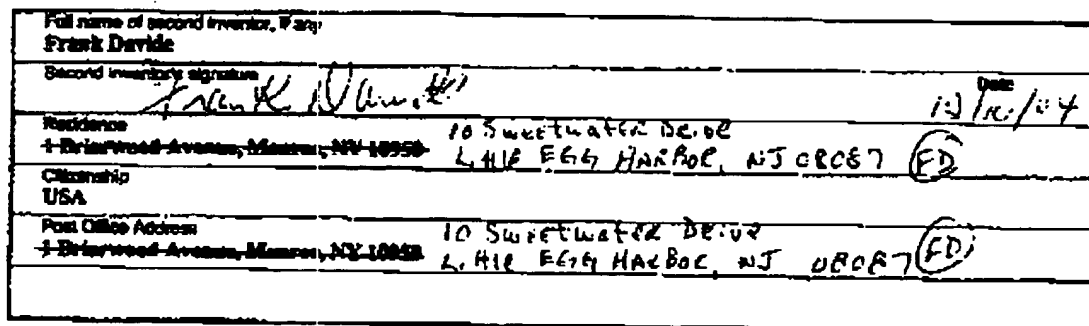 Full name of second inventor, if any
Frank Davide
Second inventor's signature
Date
Residence
1 Briarwood Avenue, Monroe, NY 10950
10 Sweetwater Drive
Little EGG HARBOR, NJ 08087 FD
Citizenship
USA
Post Office Address
1 Briarwood Avenue, Monroe, NY 10950
10 Sweetwater Drive
Little EGG HARBOR, NJ 08087 FD